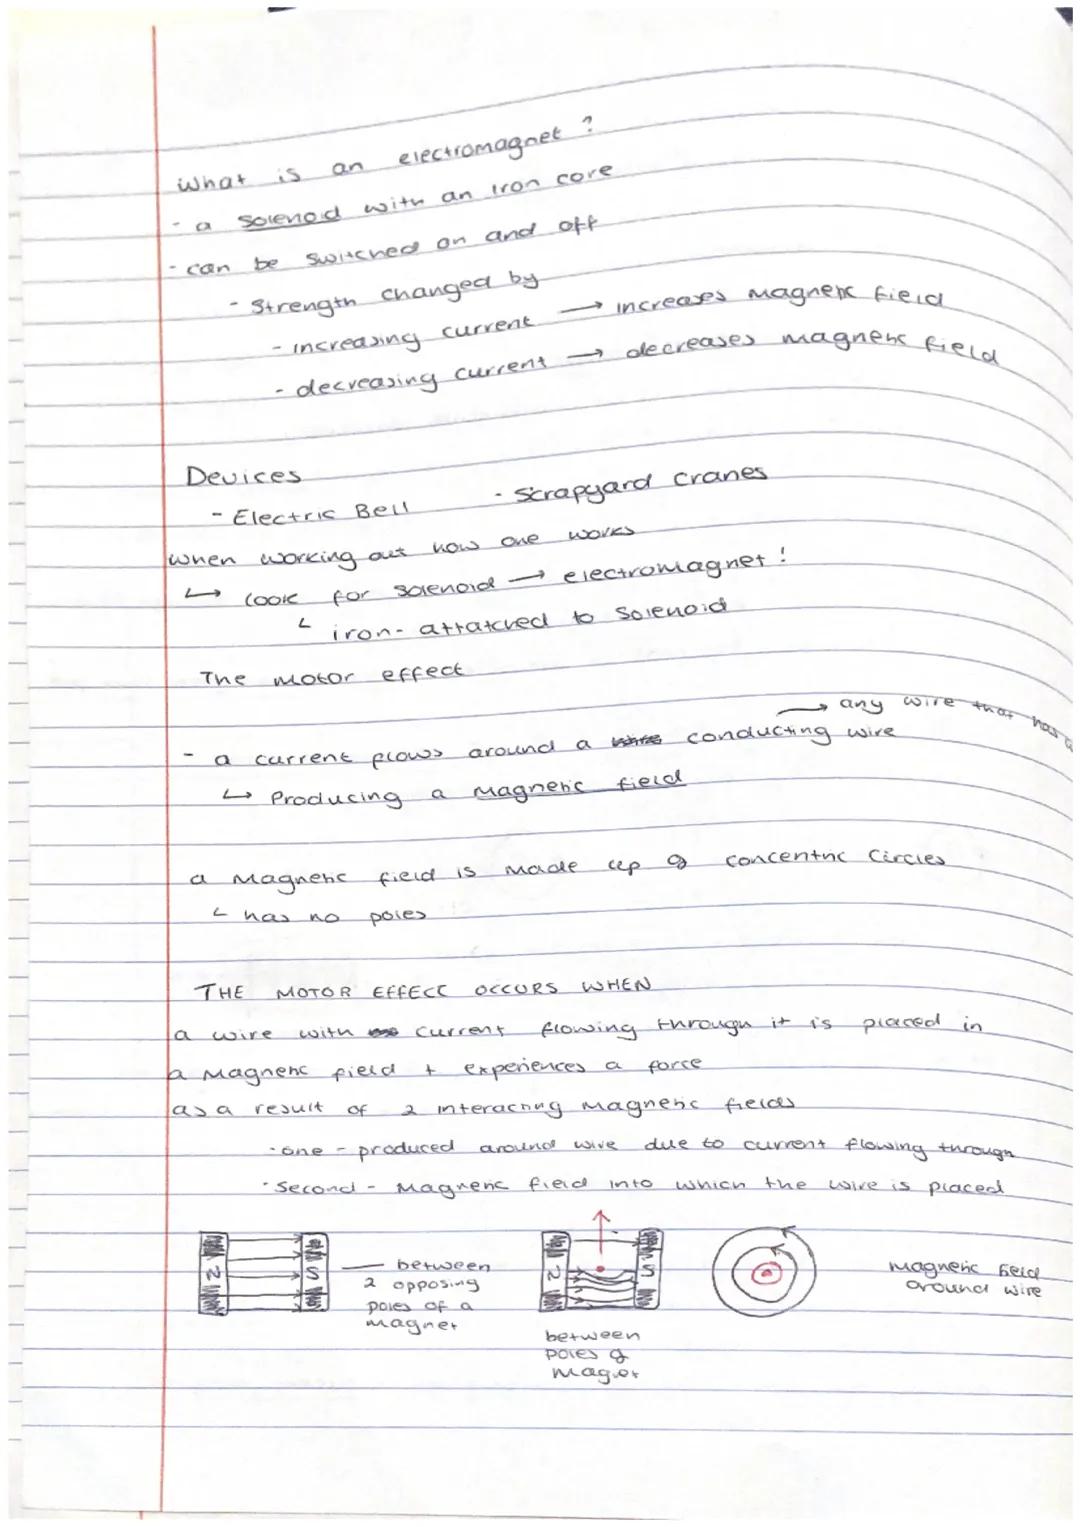 What is an electromagnet?
- a solenoid with an iron core
- can be switched on and off
- Strength changed by
- increasing current → increases magnetic field
- decreasing current → decreases magnetic field
Devices
- Electric Bell - Scrapyard cranes
when working out how one works
↳ look for solenoid → electromagnet!
↳ iron - attatched to solenoid
The motor effect
→ any wire that has a
- a current flows around a conducting wire
↳ Producing a magnetic field
a magnetic field is made up of concentric circles
↳ has no poles
THE MOTOR EFFECT OCCURS WHEN
a wire with current flowing through it is placed in
a magnetic field + experiences a force
as a result of 2 interacting magnetic fields
· one - produced around wire due to current flowing through
· Second - magnetic field into which the wire is placed
N S
— between
2 opposing
poles of a
magnet
N S
between
poles of
magnet
magnetic field
around wire